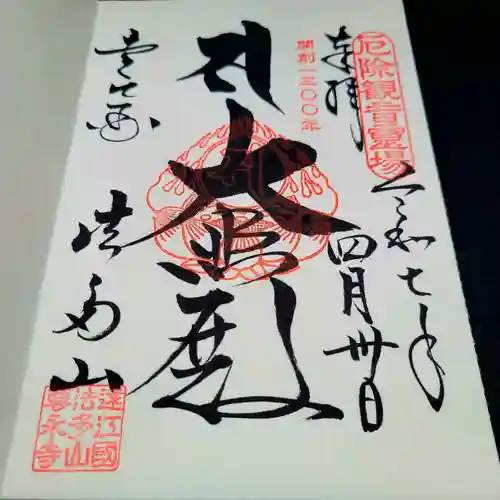 厄除観音霊場
奉拝
令和七年
四月卅日
開創一三〇〇年
大悲殿
壱七番
法多山
遠江國
法多山
尊永寺